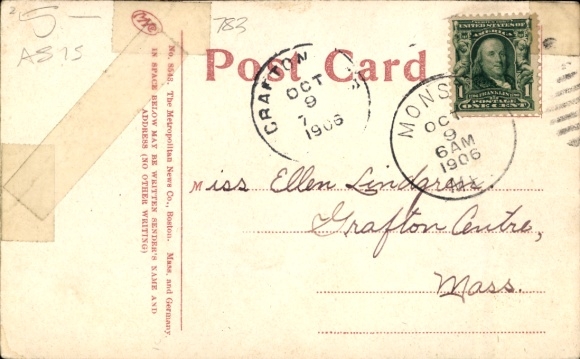 5-
AS IS
783
Post Card
No. 8543. The Metropolitan News Co., Boston. Mass. and Germany
IN SPACE BELOW MAY BE WRITTEN SENDER'S NAME AND
ADDRESS (NO OTHER WRITING)
GRAFTON
OCT
9
7
1906
MONS
OCT
9
6AM
1906
UNITED STATES OF
AMERICA
1 FRANKLIN 1
POSTAGE
ONE CENT
Miss Ellen Lindgren.
Grafton Centre,
Mass.